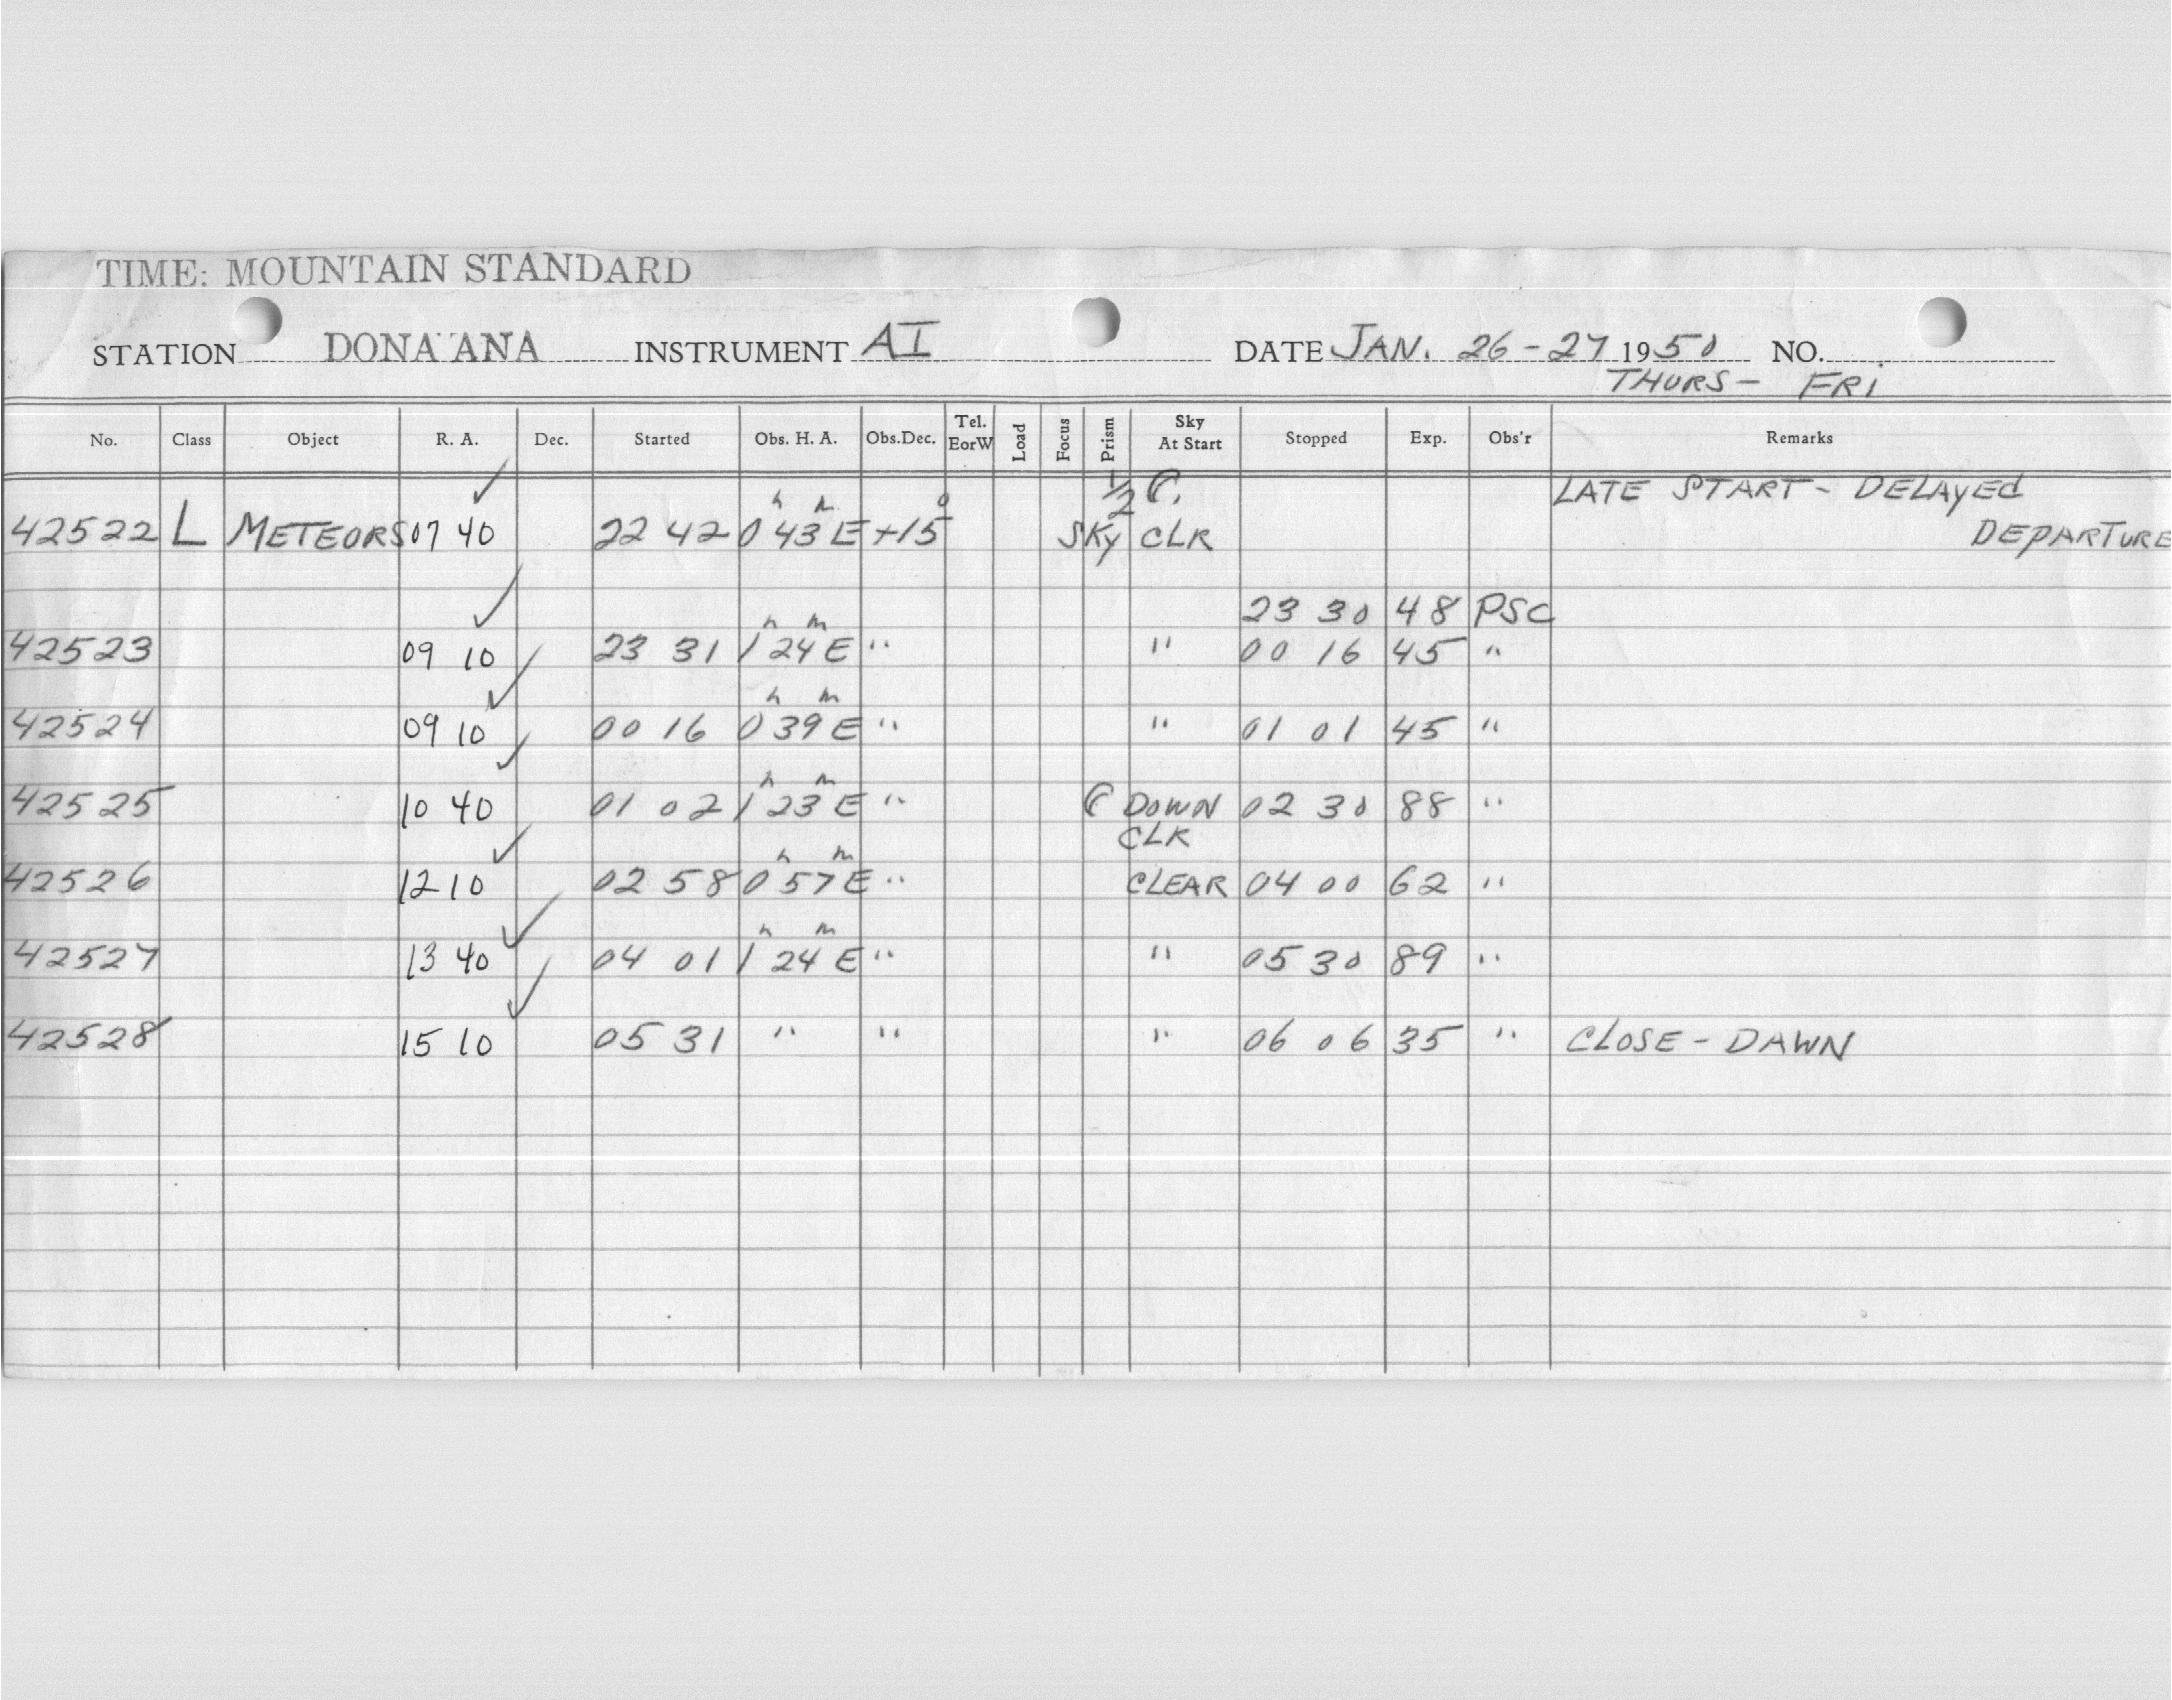 TIME: MOUNTAIN STANDARD
STATION DONA ANA INSTRUMENT AI DATE JAN. 26-27 1950 NO.
THURS- FRI
No. Class Object R. A. Dec. Started Obs. H. A. Obs.Dec. Tel. EorW Load Focus Prism Sky At Start Stopped Exp. Obs'r Remarks
1/2 LATE START - DELAYED
42522 L METEORS 07 40 22 42 0h 43m E +15° SKY CLR DEPARTURE
23 30 48 PSC
42523 09 10 23 31 1h 24m E " " 00 16 45 "
42524 09 10 00 16 0h 39m E " " 01 01 45 "
42525 10 40 01 02 1h 23m E " DOWN 02 30 88 "
CLR
42526 12 10 02 58 0h 57m E " CLEAR 04 00 62 "
42527 13 40 04 01 1h 24m E " " 05 30 89 "
42528 15 10 05 31 " " " 06 06 35 " CLOSE - DAWN